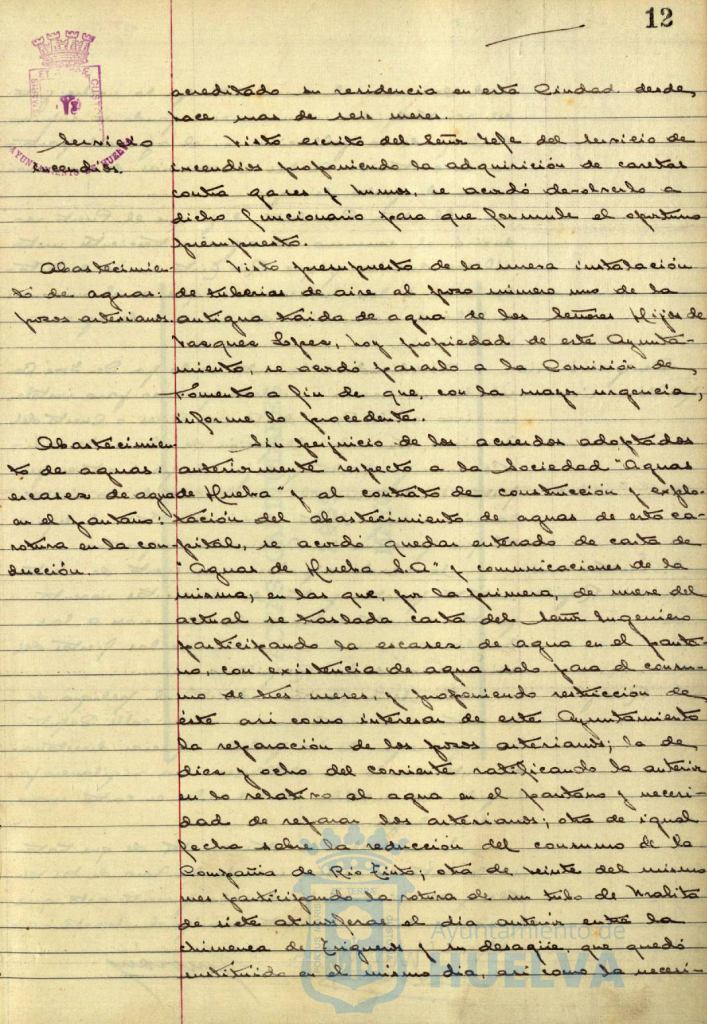 12
acreditado su residencia en esta Ciudad desde,
hace mas de seis meses.
Servicio
incendios.
Visto escrito del Señor Jefe del Servicio de
incendios proponiendo la adquisición de caretas
contra gases y humos, se acordó devolverlo a
dicho funcionario para que formule el oportuno
presupuesto.
Abastecimien-
to de aguas:
pozos artesianos.
Visto presupuesto de la nueva instalación
de tuberias de aire al pozo número uno de la
antigua traida de agua de los Señores Hijos de
Vazquez Lopez, hoy propiedad de este Ayunta-
miento, se acordó pasarlo a la Comisión de
Fomento a fin de que, con la mayor urgencia,
informe lo procedente.
Abastecimien-
to de aguas:
escasez de agua
en el pantano:
rotura en la con-
ducción.
Sin perjuicio de los acuerdos adoptados
anteriormente respecto a la Sociedad "Aguas
de Huelva" y al contrato de construcción y explo-
tación del abastecimiento de aguas de esta ca-
pital, se acordó quedar enterado de carta de
"Aguas de Huelva S.A" y comunicaciones de la
misma, en las que, por la primera, de nueve del
actual se traslada carta del Señor Ingeniero
participando la escasez de agua en el panta-
no, con existencia de agua solo para el consu-
mo de tres meses, y proponiendo restricción de
éste asi como interesar de este Ayuntamiento
la reparación de los pozos artesianos; la de
diez y ocho del corriente ratificando la anterior
en lo relativo al agua en el pantano y necesi-
dad de reparar los artesianos; otra de igual
fecha sobre la reducción del consumo de la
Compañia de Rio Tinto; otra de veinte del mismo
mes participando la rotura de un tubo de Uralita
de siete atmosferas el dia anterior entre la
chimenea de Trigueros y su desagüe, que quedó
sustituido en el mismo dia, asi como la necesi-
AYUNTAMIENTO DE HUELVA
Ayuntamiento de
HUELVA